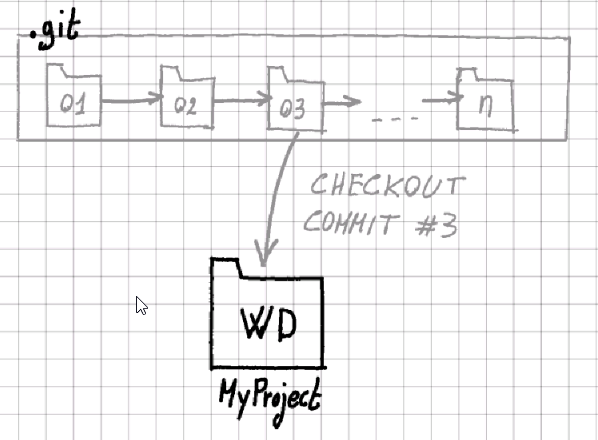 .git
01 02 03 --- n
CHECKOUT
COMMIT #3
WD
MyProject